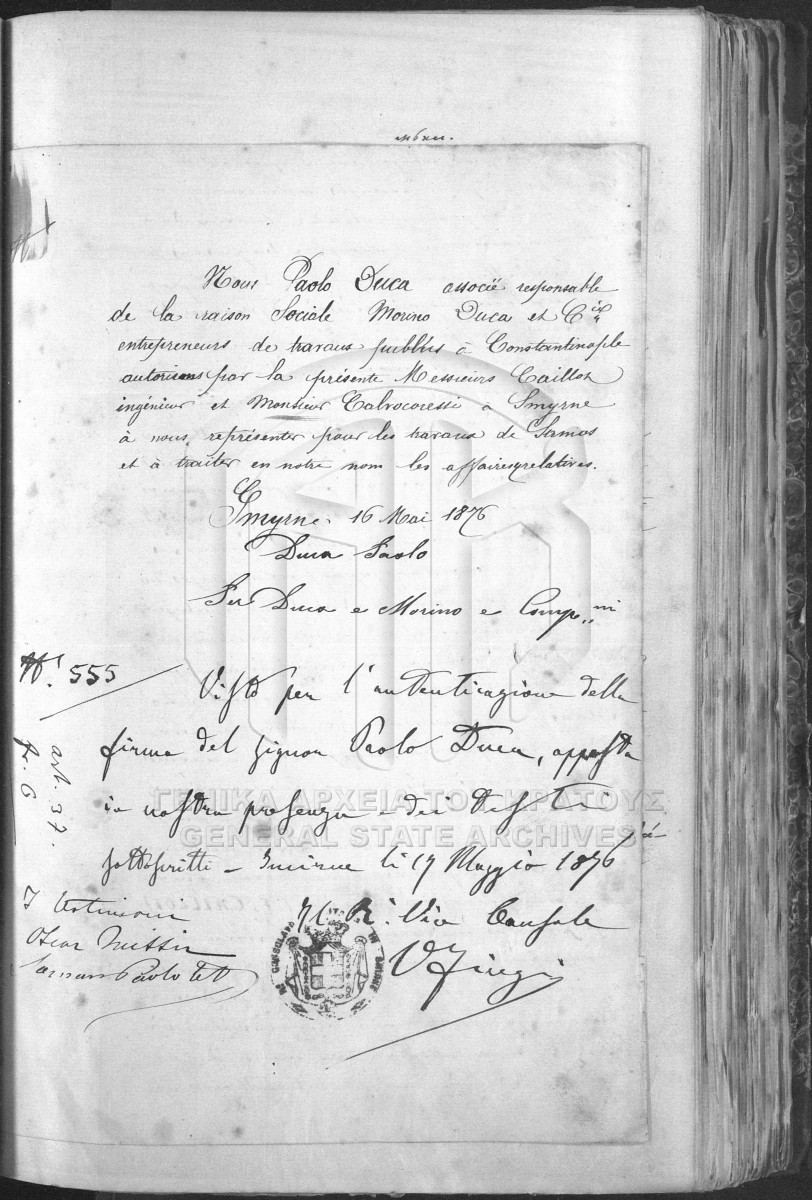 Nous Paolo Duca associé responsable
de la raison Sociale Morino Duca et Cie
entrepreneurs de travaux publics à Constantinople
autorisons par la présente Messieurs Caillot
ingénieur et Monsieur Calvocoressi à Smyrne
à nous représenter pour les travaux de Samos
et à traiter en notre nom les affaires relatives.
Smyrne 16 Mai 1876
Duca Paolo
Per Duca e Morino e Comp.ni
N.° 555
Visto per l'autenticazione della
firma del Signor Paolo Duca, apposta
in nostra presenza e dei Testi
sottoscritti – Smirne li 17 Maggio 1876
art. 37.
I testimoni
Il R.° Vice Console
Paolo
ΓΕΝΙΚΑ ΑΡΧΕΙΑ ΤΟΥ ΚΡΑΤΟΥΣ
GENERAL STATE ARCHIVES